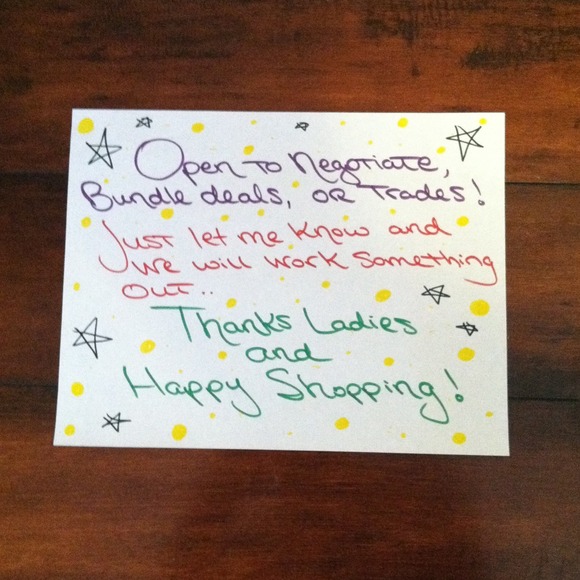 Open to Negotiate,
Bundle deals, or Trades!
Just let me know and
we will work something
out..
Thanks Ladies
and
Happy Shopping!